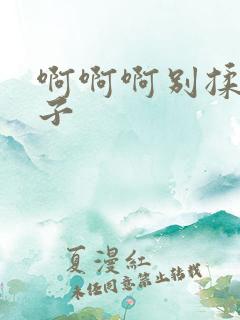 啊啊啊别揉
子
夏漫红
未经同意禁止转载